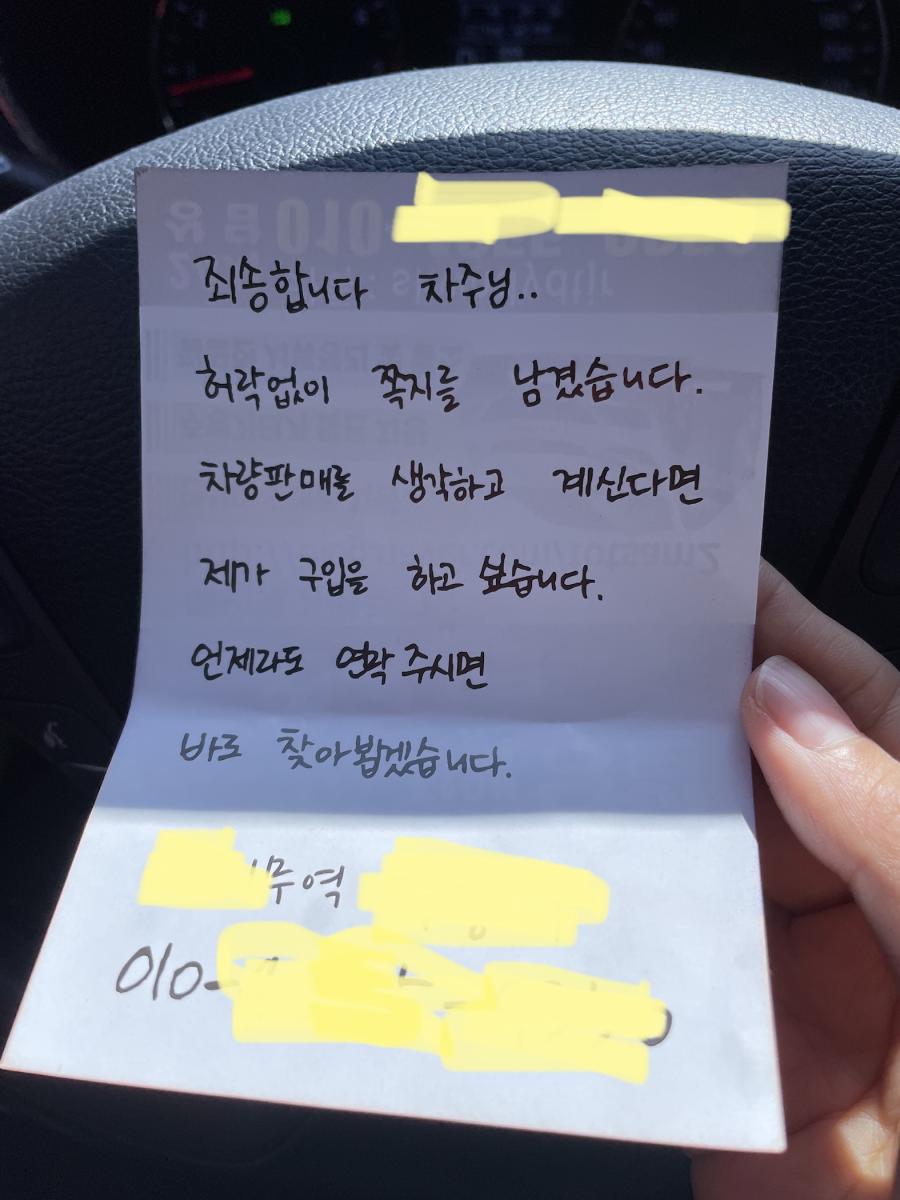 죄송합니다 차주님..
허락없이 쪽지를 남겼습니다.
차량판매를 생각하고 계신다면
제가 구입을 하고 싶습니다.
언제라도 연락주시면
바로 찾아봽겠습니다.
무역
010-